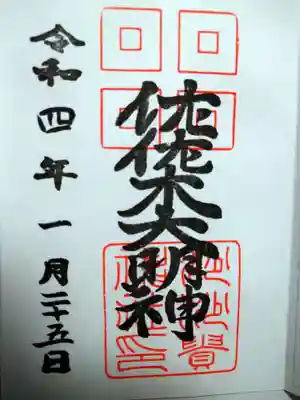 佐佐木大明神
沙沙貴
令和四年一月二十五日